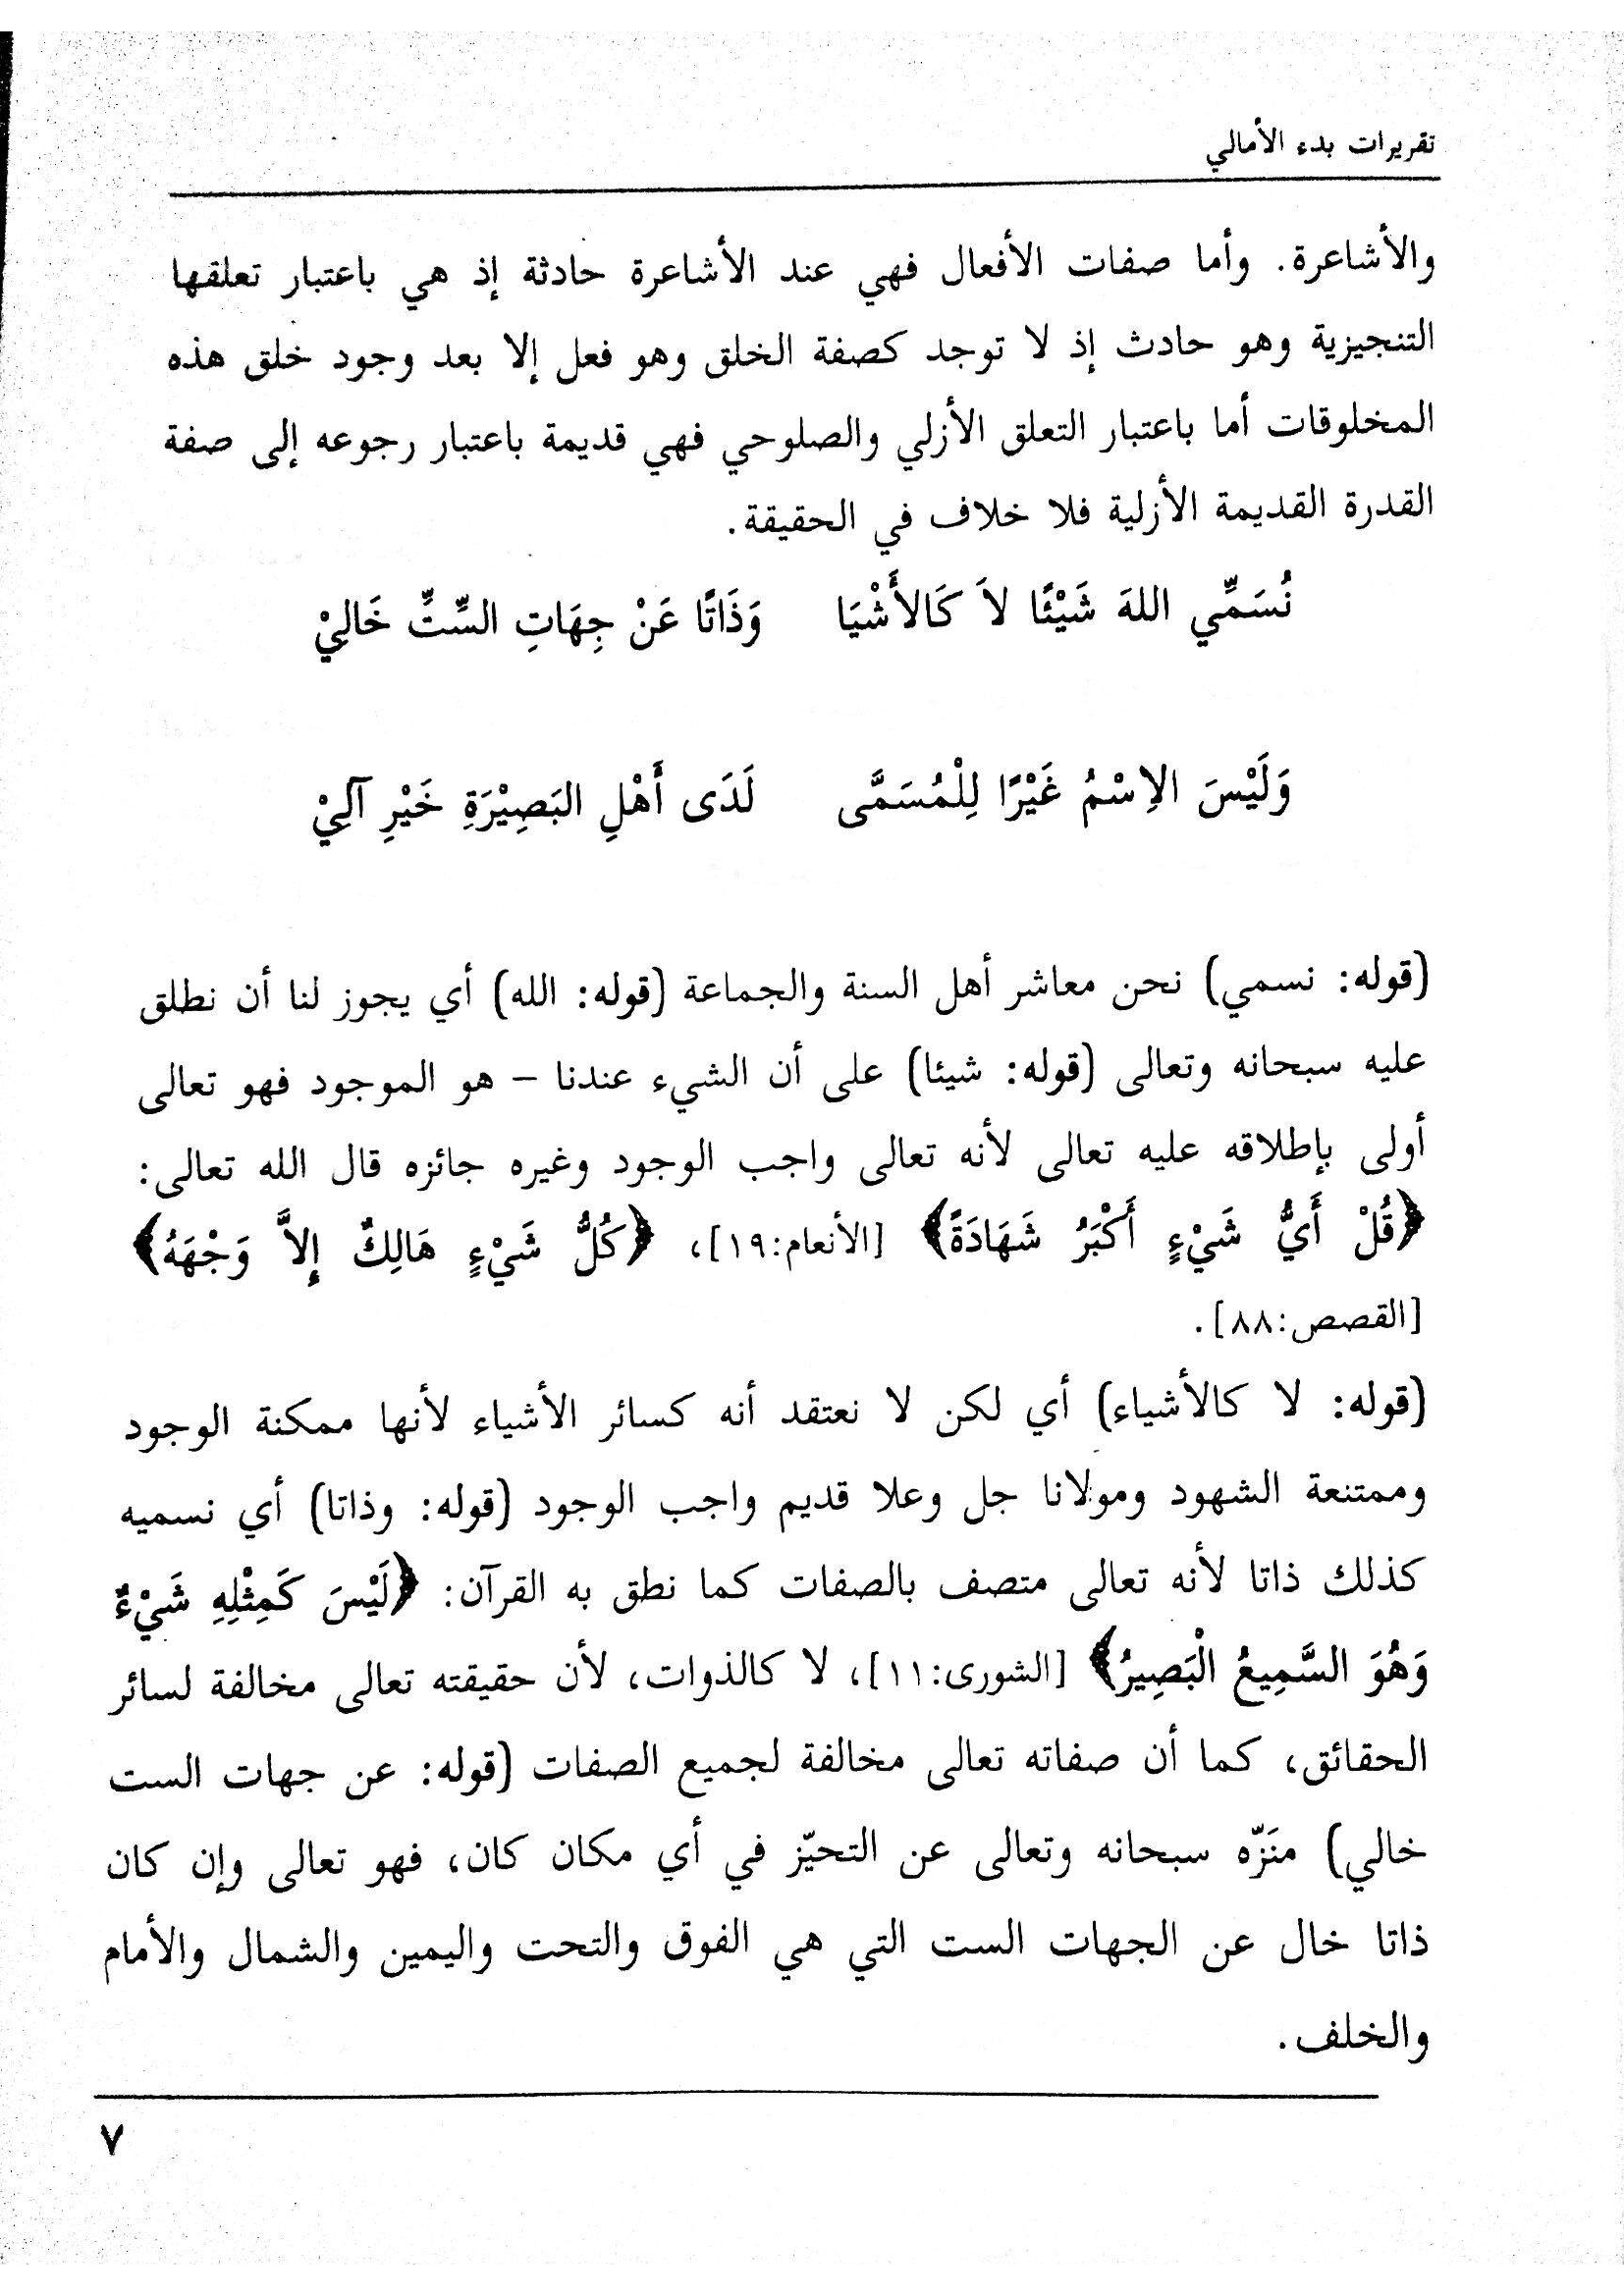 تقريرات بدء الأمالي
والأشاعرة. وأما صفات الأفعال فهي عند الأشاعرة حادثة إذ هي باعتبار تعلقها
التنجيزية وهو حادث إذ لا توجد كصفة الخلق وهو فعل إلا بعد وجود خلق هذه
المخلوقات أما باعتبار التعلق الأزلي والصلوحي فهي قديمة باعتبار رجوعه إلى صفة
القدرة القديمة الأزلية فلا خلاف في الحقيقة.
نُسَمِّي اللهَ شَيْئًا لاَ كَالأَشْيَا وَذَاتًا عَنْ جِهَاتِ السِّتِّ خَالِيْ
وَلَيْسَ الاِسْمُ غَيْرًا لِلْمُسَمَّى لَدَى أَهْلِ البَصِيْرَةِ خَيْرِ آلِيْ
(قوله: نسمي) نحن معاشر أهل السنة والجماعة (قوله: الله) أي يجوز لنا أن نطلق
عليه سبحانه وتعالى (قوله: شيئا) على أن الشيء عندنا – هو الموجود فهو تعالى
أولى بإطلاقه عليه تعالى لأنه تعالى واجب الوجود وغيره جائزه قال الله تعالى:
﴿قُلْ أَيُّ شَيْءٍ أَكْبَرُ شَهَادَةً﴾ [الأنعام:١٩]، ﴿كُلُّ شَيْءٍ هَالِكٌ إِلاَّ وَجْهَهُ﴾
[القصص:٨٨].
(قوله: لا كالأشياء) أي لكن لا نعتقد أنه كسائر الأشياء لأنها ممكنة الوجود
وممتنعة الشهود ومولانا جل وعلا قديم واجب الوجود (قوله: وذاتا) أي نسميه
كذلك ذاتا لأنه تعالى متصف بالصفات كما نطق به القرآن: ﴿لَيْسَ كَمِثْلِهِ شَيْءٌ
وَهُوَ السَّمِيعُ الْبَصِيرُ﴾ [الشورى:١١]، لا كالذوات، لأن حقيقته تعالى مخالفة لسائر
الحقائق، كما أن صفاته تعالى مخالفة لجميع الصفات (قوله: عن جهات الست
خالي) منَزّه سبحانه وتعالى عن التحيّز في أي مكان كان، فهو تعالى وإن كان
ذاتا خال عن الجهات الست التي هي الفوق والتحت واليمين والشمال والأمام
والخلف.
٧